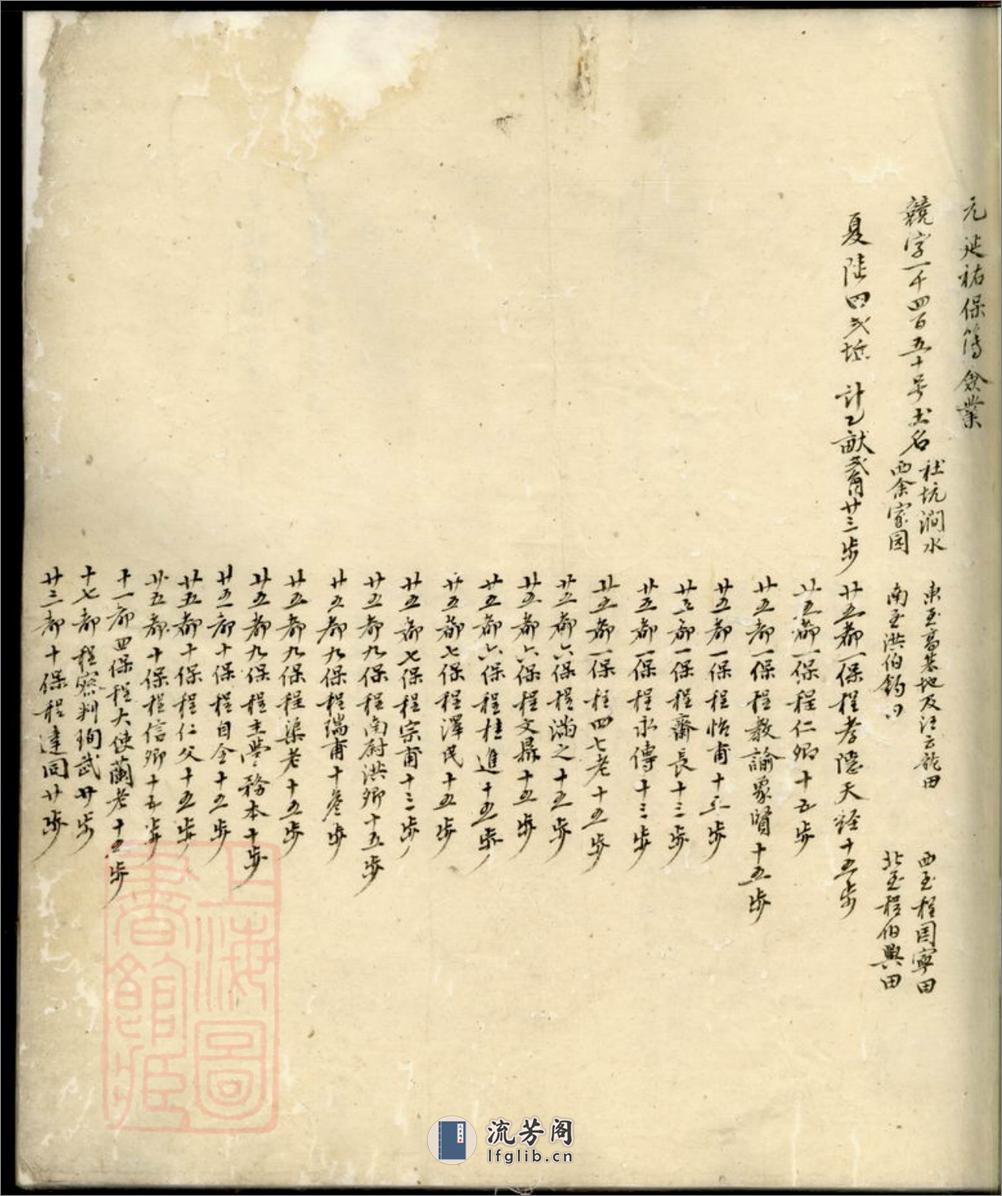 元延祐保簿僉業
競字一千四百五十号土名
社坑澗水
西余家园
東至高墓地及汪云龍田
南至洪伯鈞田
西至程周寧田
北至程伯興田
夏陸四弍坵 計乙畝弍角廿三步
廿五都一保程孝隱天経十五步
廿五都一保程仁卿十五步
廿五都一保程教諭眾賢十五步
廿五都一保程怡甫十五步
廿五都一保程齋長十三步
廿五都一保程永傳十三步
廿五都一保程四七老十五步
廿五都六保程滿之十五步
廿五都六保程文鼎十五步
廿五都六保程桂進十五步
廿五都七保程澤民十五步
廿五都七保程宗甫十三步
廿五都九保程南尉洪卿十五步
廿五都九保程瑞甫十叁步
廿五都九保程渠老十五步
廿五都九保程主學務本十步
廿五都十保程自全十五步
廿五都十保程仁父十五步
廿五都十保程信卿十五步
十一都四保程大使蘭老十五步
十七都程察判珣武廿步
廿三都十保程達同廿步
上海圖書館藏
流芳阁
lfglib.cn